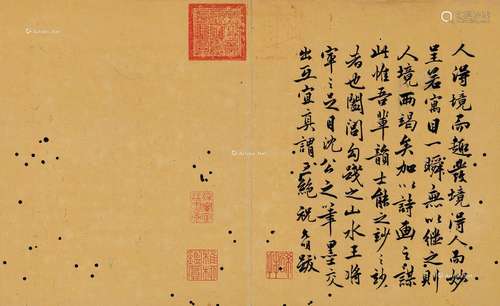 人得境而趣發境得人而妙
呈若寓目一瞬無以繼之則
人境兩竭矣加以詩画之謀
此惟吾輩韻士能之妙之妙
者也闔閭勾踐之山水王將
宰之足目沈公之筆墨交
出互宜真謂絕祝跋